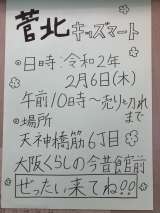 菅北キッズマート
●日時:令和2年
2月6日(木)
午前10時〜売り切れ
まで
●場所
天神橋筋6丁目
大阪くらしの今昔館前
ぜったい来てね!!